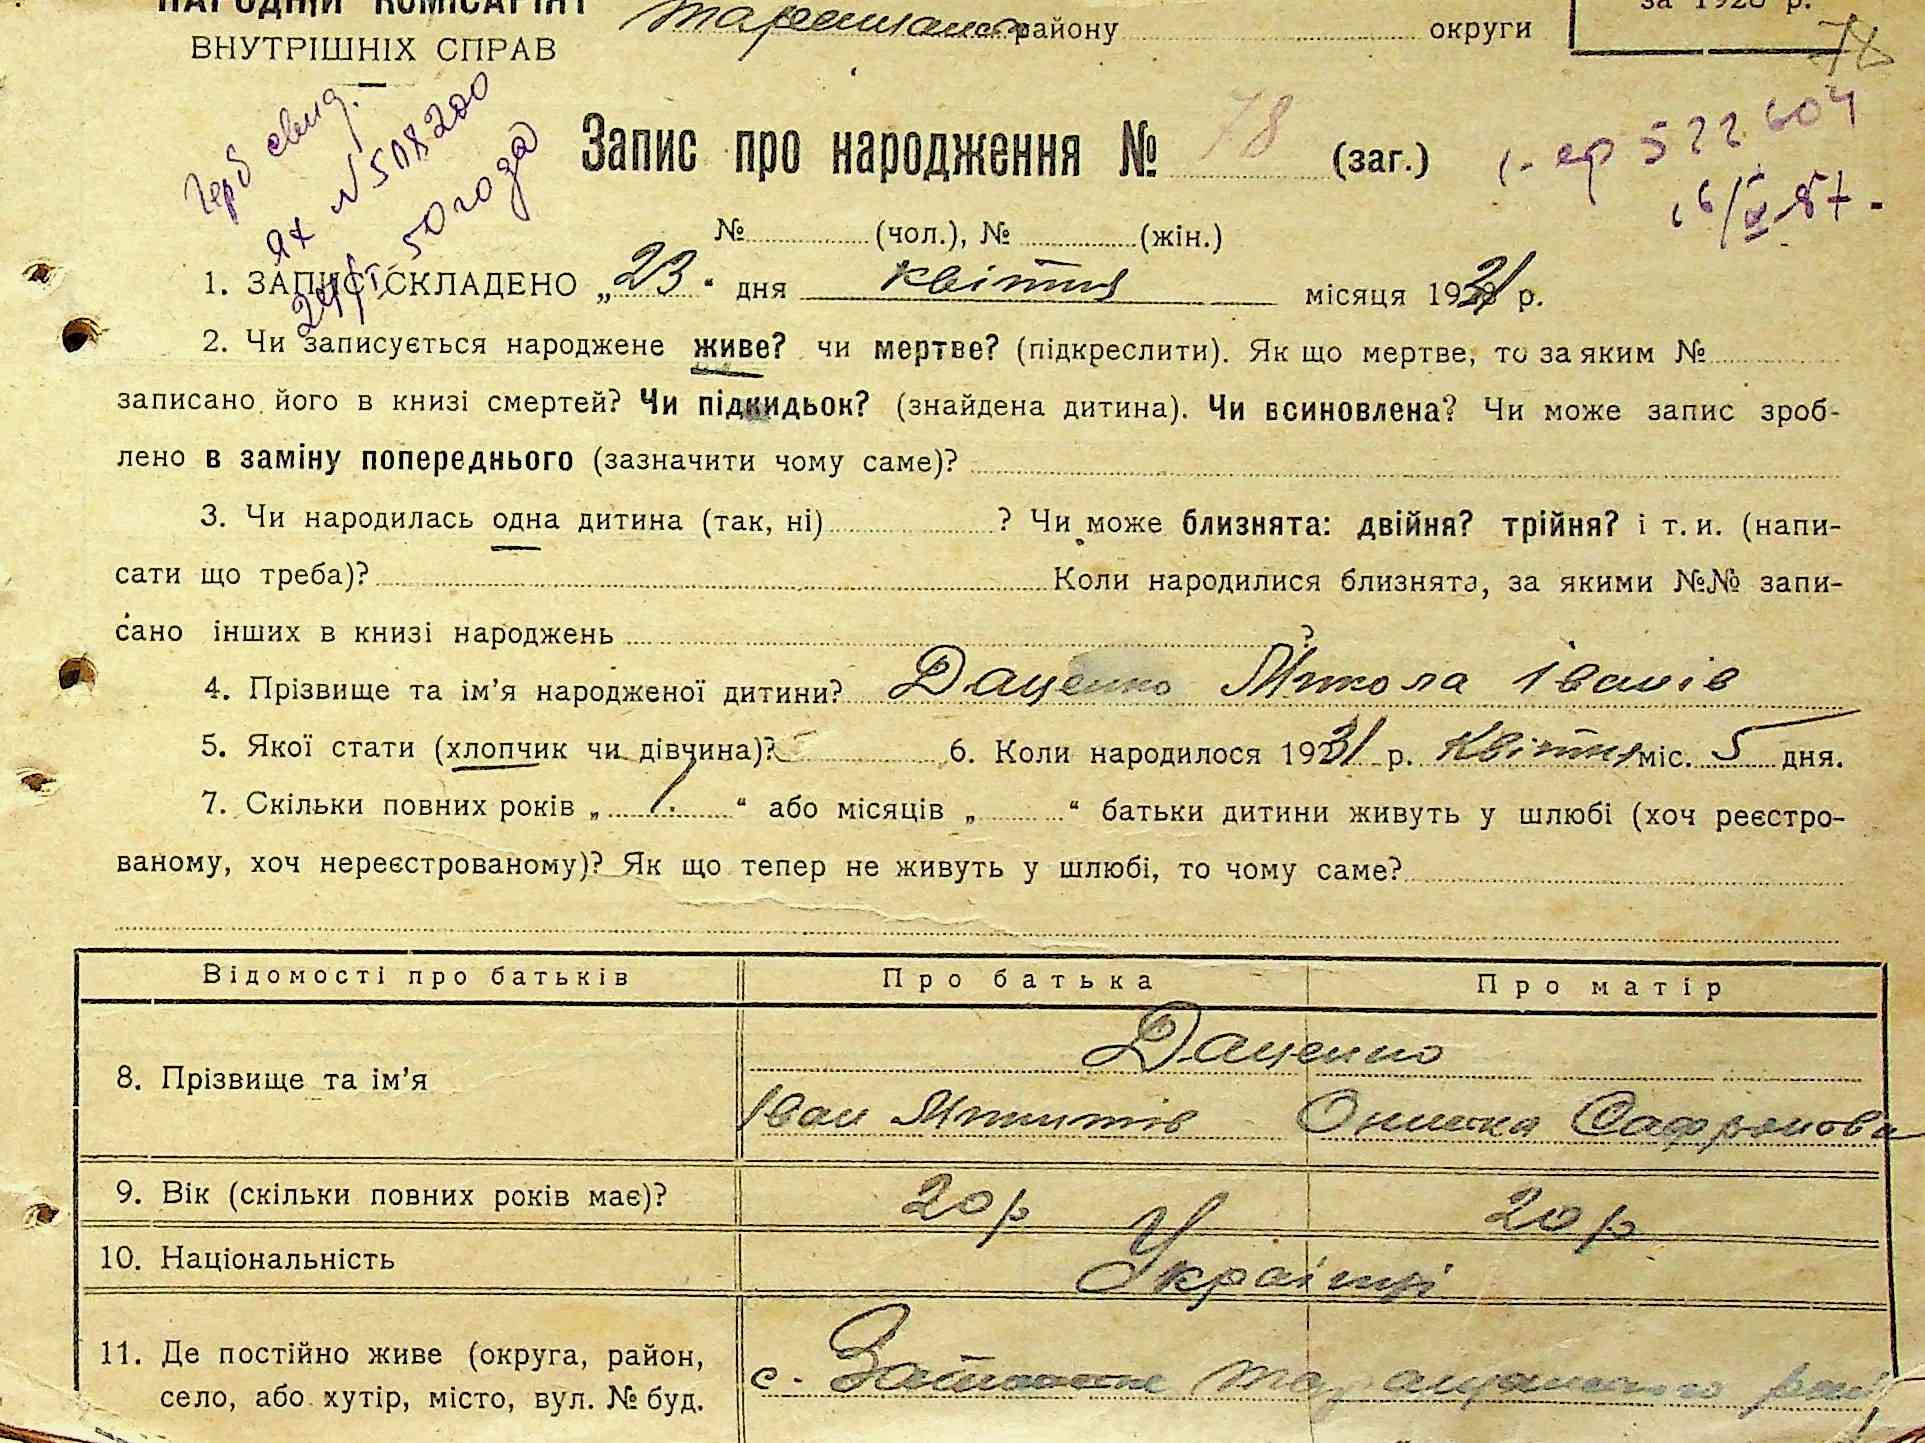 НАРОДНІЙ КОМІСАРІЯТ
ВНУТРІШНІХ СПРАВ
району округи
за 1928 р.
78
Герб свид.
ЯХ № 508200
50 года
Запис про народження № 78 (заг.)
522604
16/V-87.
№ (чол.), № (жін.)
1. ЗАПИС СКЛАДЕНО „23" дня квітня місяця 1931 р.
2. Чи записується народжене живе? чи мертве? (підкреслити). Як що мертве, то за яким №
записано його в книзі смертей? Чи підкидьок? (знайдена дитина). Чи всиновлена? Чи може запис зроб-
лено в заміну попереднього (зазначити чому саме)?
3. Чи народилась одна дитина (так, ні) ? Чи може близнята: двійня? трійня? і т. и. (напи-
сати що треба)? Коли народилися близнята, за якими №№ запи-
сано інших в книзі народжень ?
4. Прізвище та ім'я народженої дитини? Даценко Микола Іванів
5. Якої стати (хлопчик чи дівчина)? 6. Коли народилося 1931 р. Квітня міс. 5 дня.
7. Скільки повних років „ 1. " або місяців „ " батьки дитини живуть у шлюбі (хоч реєстро-
ваному, хоч нереєстрованому)? Як що тепер не живуть у шлюбі, то чому саме?
Відомості про батьків Про батька Про матір
8. Прізвище та ім'я Даценко
Іван Микитів Онишка Сафронова
9. Вік (скільки повних років має)? 20 р 20 р
10. Національність Українці
11. Де постійно живе (округа, район,
село, або хутір, місто, вул. № буд.
с. Таращанського рай